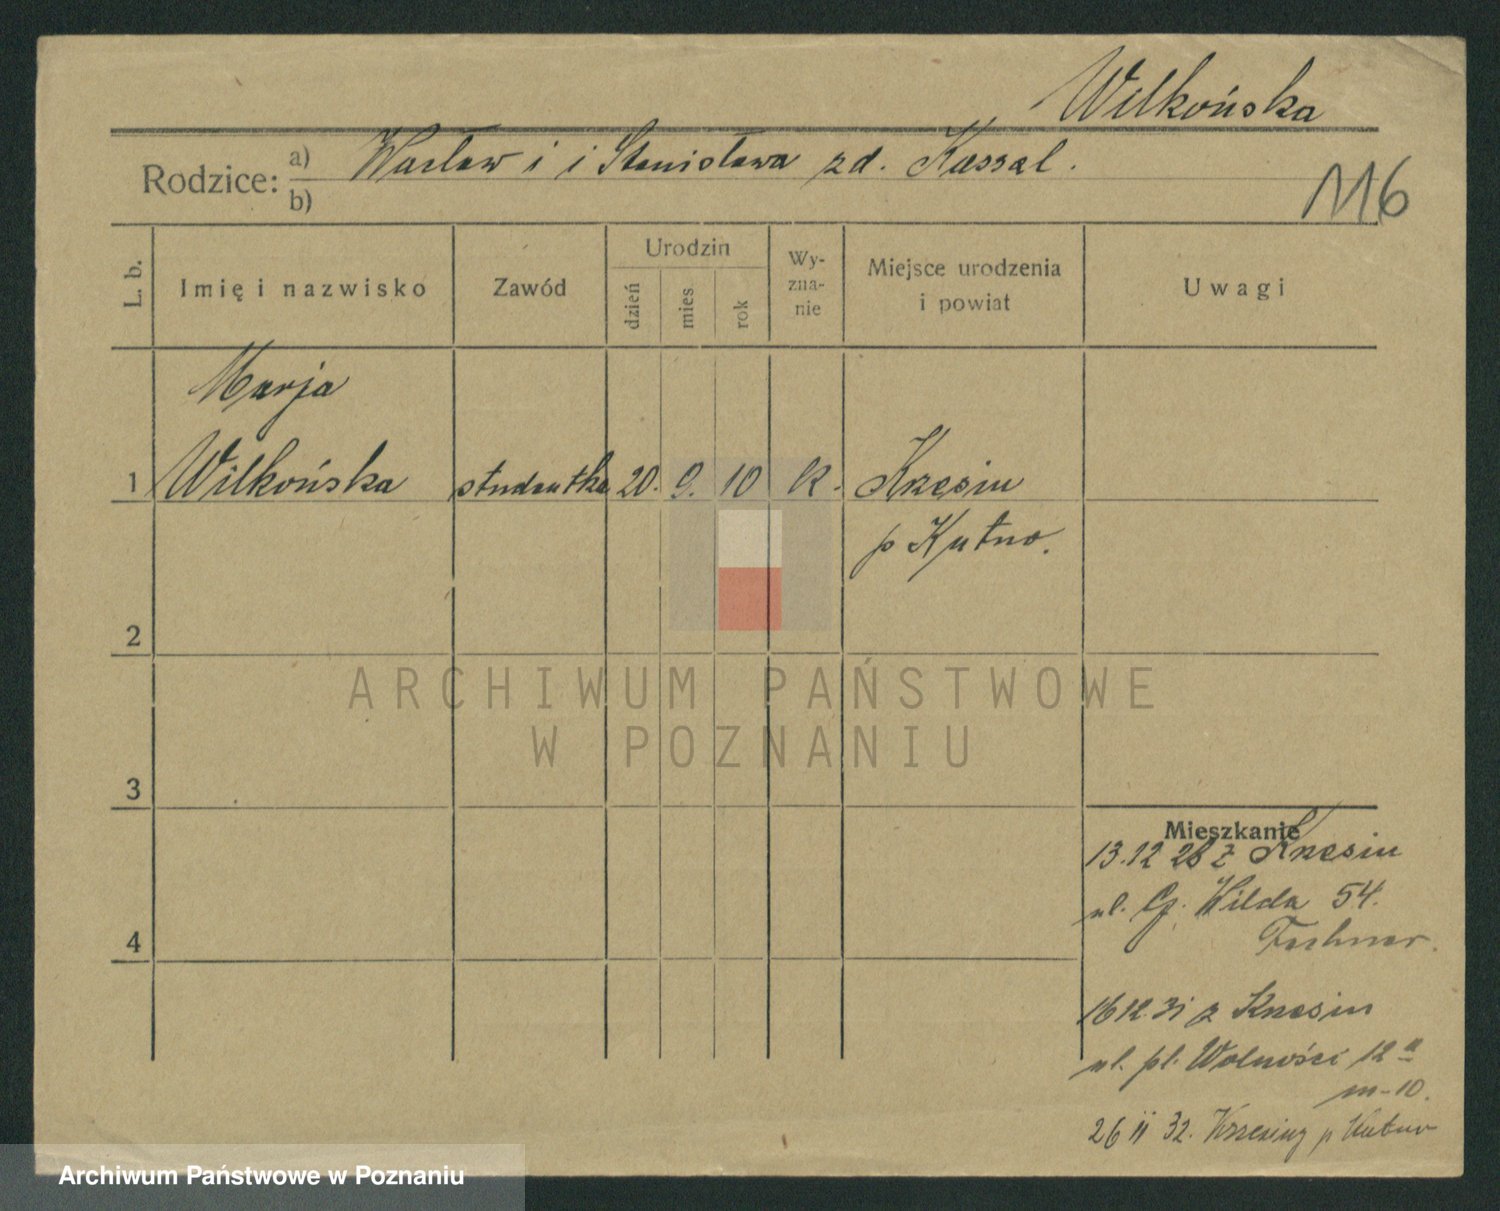 Wilkońska
Rodzice: a) Wacław i i Stanisława zd. Kassal.
b)
116
L. b.
Imię i nazwisko
Zawód
Urodzin
dzień
mies
rok
Wy-
zna-
nie
Miejsce urodzenia
i powiat
Uwagi
Marja
1 Wilkońska studentka 20. 9. 10 k. Krzesin
p Kutno.
2
ARCHIWUM PAŃSTWOWE
W POZNANIU
3
Mieszkanie
13.12 28 z Krzesin
ul. G. Wilda 54.
4
16 12. 31 z Krzesin
ul. pl. Wolności 12 a
m-10.
26 II 32. p Kutno
Archiwum Państwowe w Poznaniu